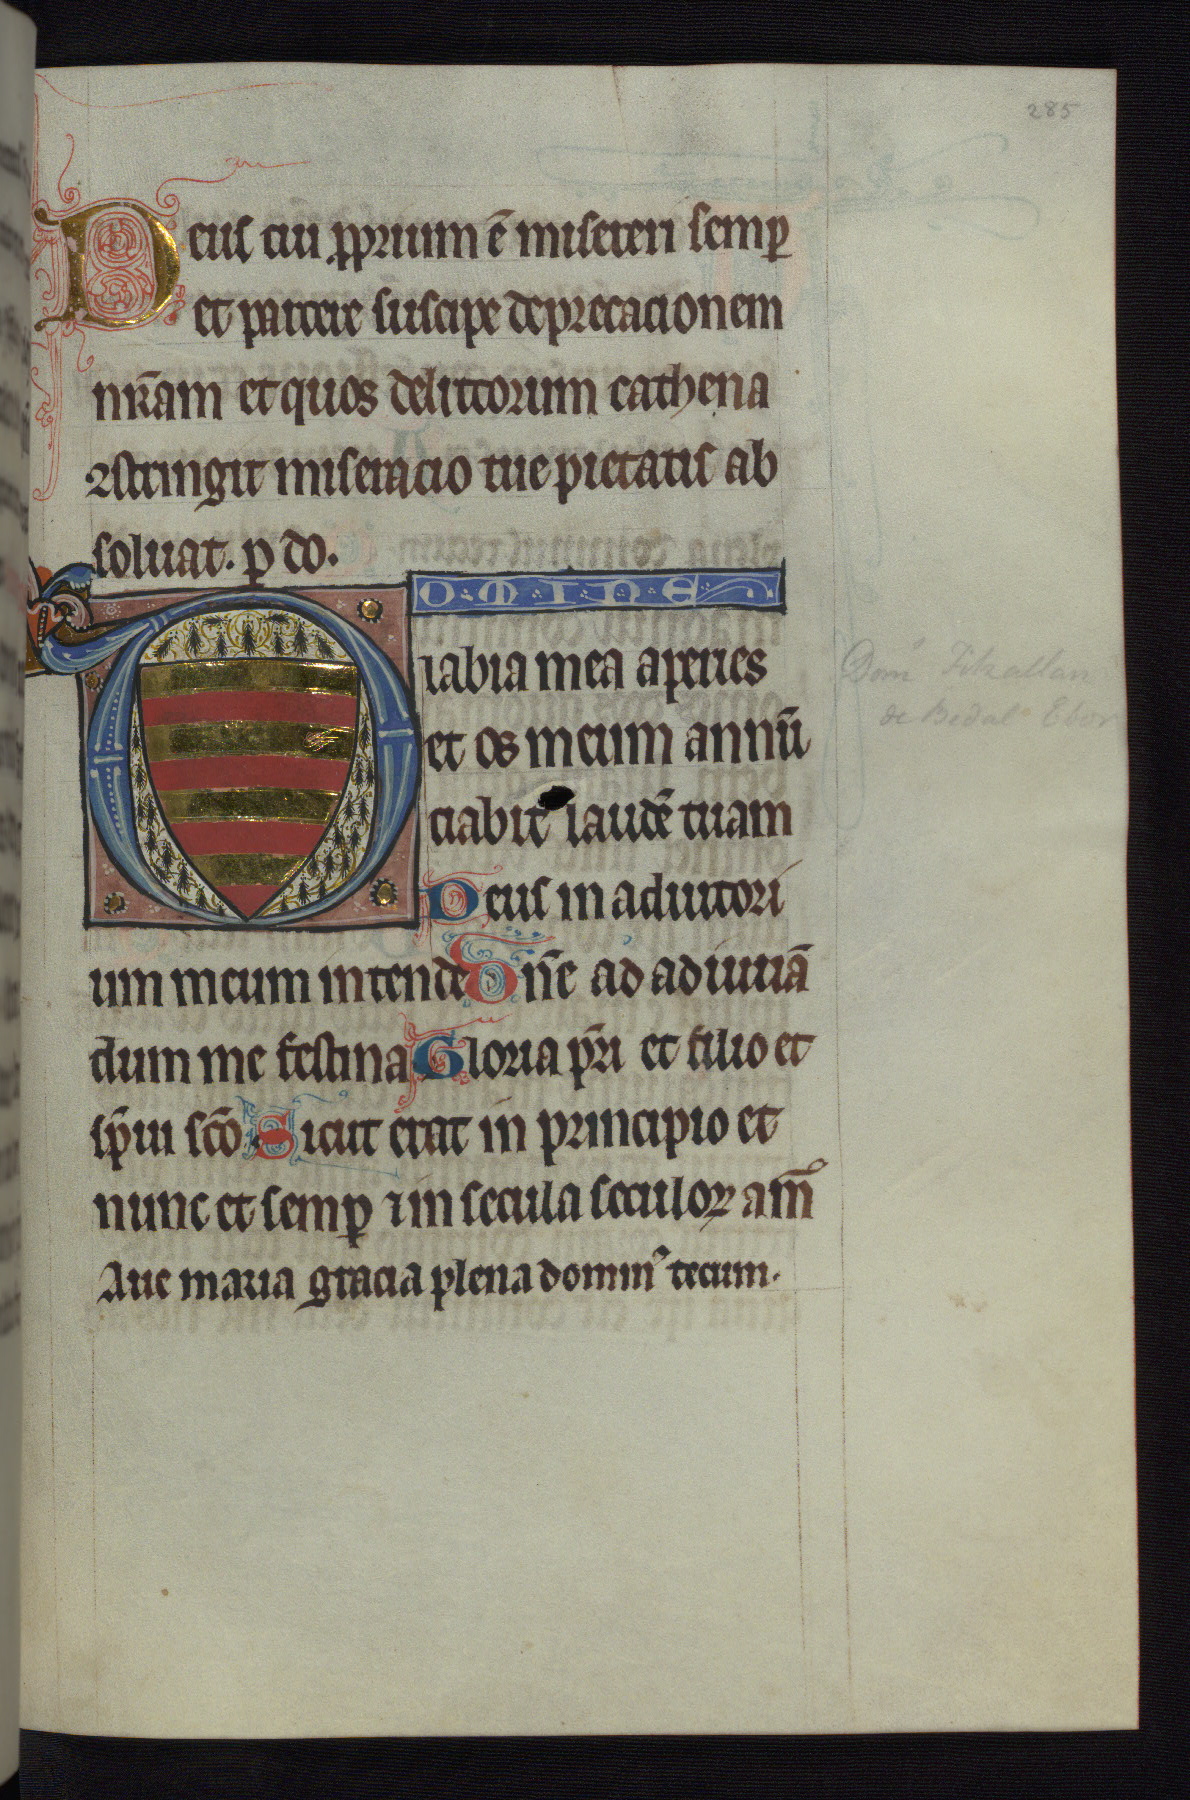 285
Deus cui pprium ē misereri semp
et parcere suscipe deprecacionem
nr̄am et quos delictorum cathena
ꝯstringit miseracio tue pietatis ab
soluat. p do.
DOMINE
labia mea aperies
et os meum annū
ciabit laudē tuam
Deus in adiutori
um meum intende Dn̄e ad adiuuā
dum me festina Gloria pr̄i et filio et
sp̄ui sc̄o Sicut erat in principio et
nunc et semp ⁊ in secula seculoꝝ am̄
Aue maria gracia plena dominꝰ tecum.
Dom Fitzallan
de Bedal Ebor